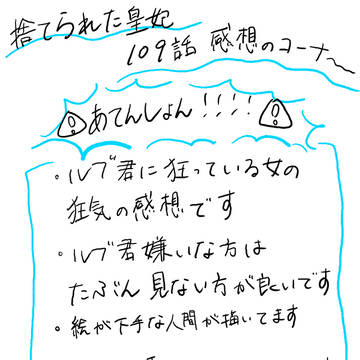 捨てられた皇妃
109話 感想のコーナ〜
⚠あてんしょん!!!!⚠
・ルブ君に狂っている女の
狂気の感想です
・ルブ君嫌いな方は
たぶん見ない方が良いです
・絵が下手な人間が描いてます